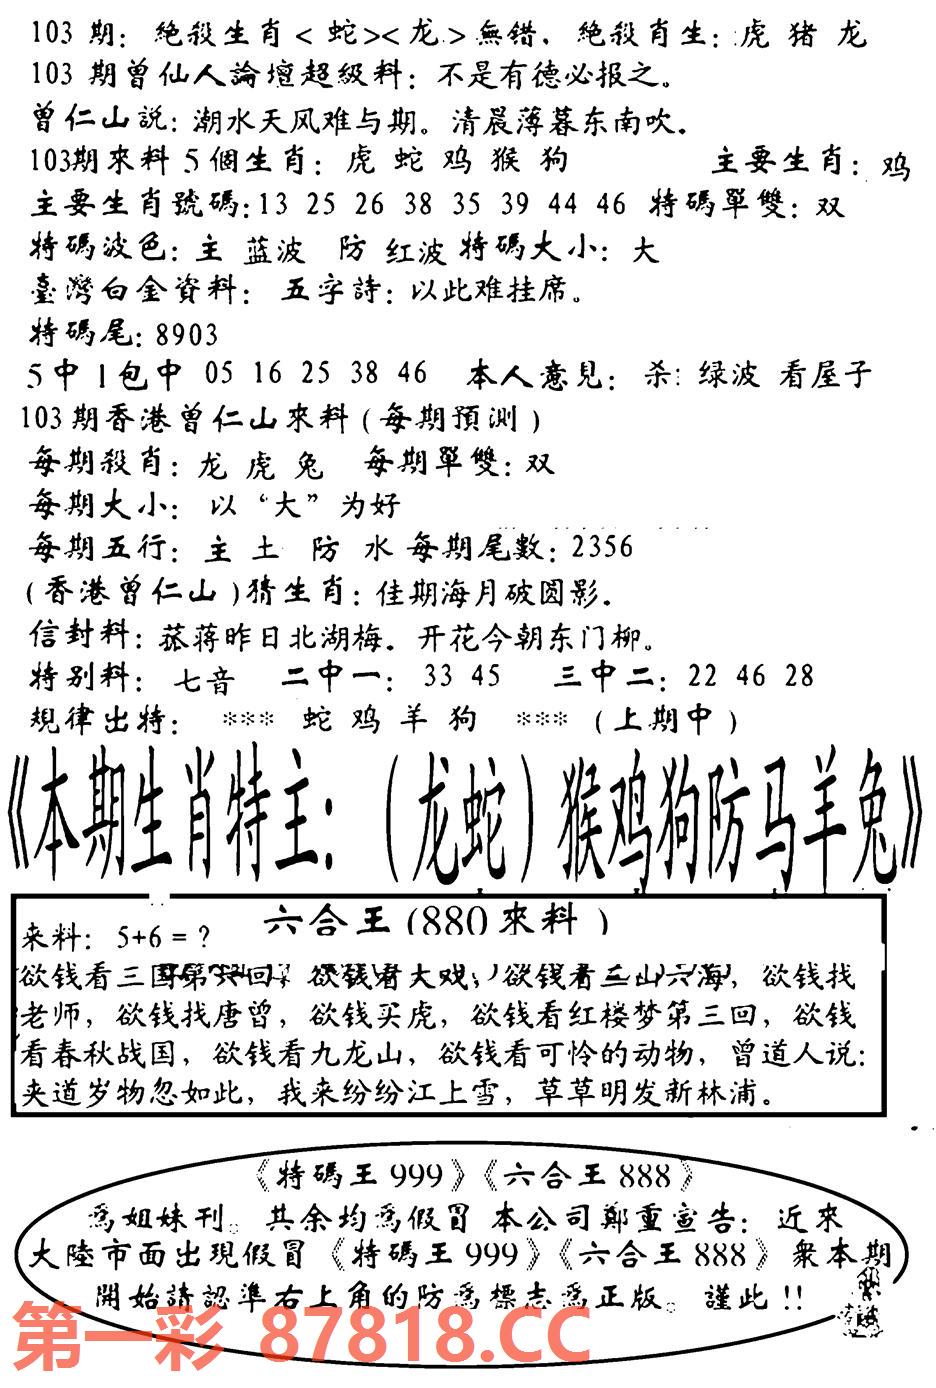 103 期: 絶殺生肖< 蛇><龙>無错. 絶殺肖生: 虎 猪 龙
103 期曾仙人論壇超級料: 不是有德必报之。
曾仁山説: 潮水天风难与期。清晨薄暮东南吹.
103期來料 5 個生肖: 虎 蛇 鸡 猴 狗 主要生肖: 鸡
主要生肖號碼:13 25 26 38 35 39 44 46 特碼單雙: 双
特碼波色: 主 蓝波 防 红波 特碼大小: 大
臺灣白金資料: 五字詩: 以此难挂席。
特碼尾: 8903
5 中 1 包中 05 16 25 38 46 本人意見: 杀: 绿波 看屋子
103 期香港曾仁山來料 ( 每期預測 )
每期殺肖: 龙 虎 兔 每期單雙: 双
每期大小: 以“大”为好
每期五行: 主 土 防 水 每期尾數: 2356
(香港曾仁山)猜生肖: 佳期海月破圆影.
信封料: 菰蒋昨日北湖梅. 开花今朝东门柳。
特别料: 七音 二中一: 33 45 三中二: 22 46 28
規律出特: *** 蛇 鸡 羊 狗 *** (上期中)
《本期生肖特主: (龙蛇) 猴鸡狗防马羊兔》
六合王(880 來料 )
来料: 5+6 = ?
欲钱看三国第六回, 欲钱看大戏, 欲钱看三山六海, 欲钱找
老师, 欲钱找唐曾, 欲钱买虎, 欲钱看红楼梦第三回, 欲钱
看春秋战国, 欲钱看九龙山, 欲钱看可怜的动物, 曾道人说:
夹道岁物忽如此, 我来纷纷江上雪, 草草明发新林浦。
《特碼王 999》《六合王 888》
爲姐妹刊。其余均爲假冒 本公司鄭重宣告: 近來
大陸市面出現假冒《特碼王 999》《六合王 888》衆本期
開始請認準右上角的防爲標志爲正版。謹此!!
第一彩 87818.CC